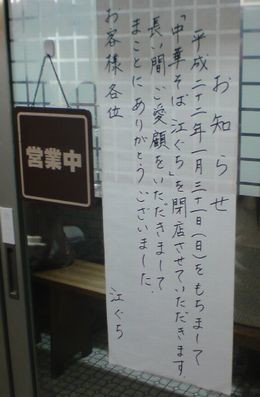 お知らせ
平成二十二年一月三十一日(日)をもちまして
「中華そば 江ぐち」を閉店させていただきます
長い間ご愛顧をいただきまして
まことにありがとうございました。
お客様各位
江ぐち
営業中